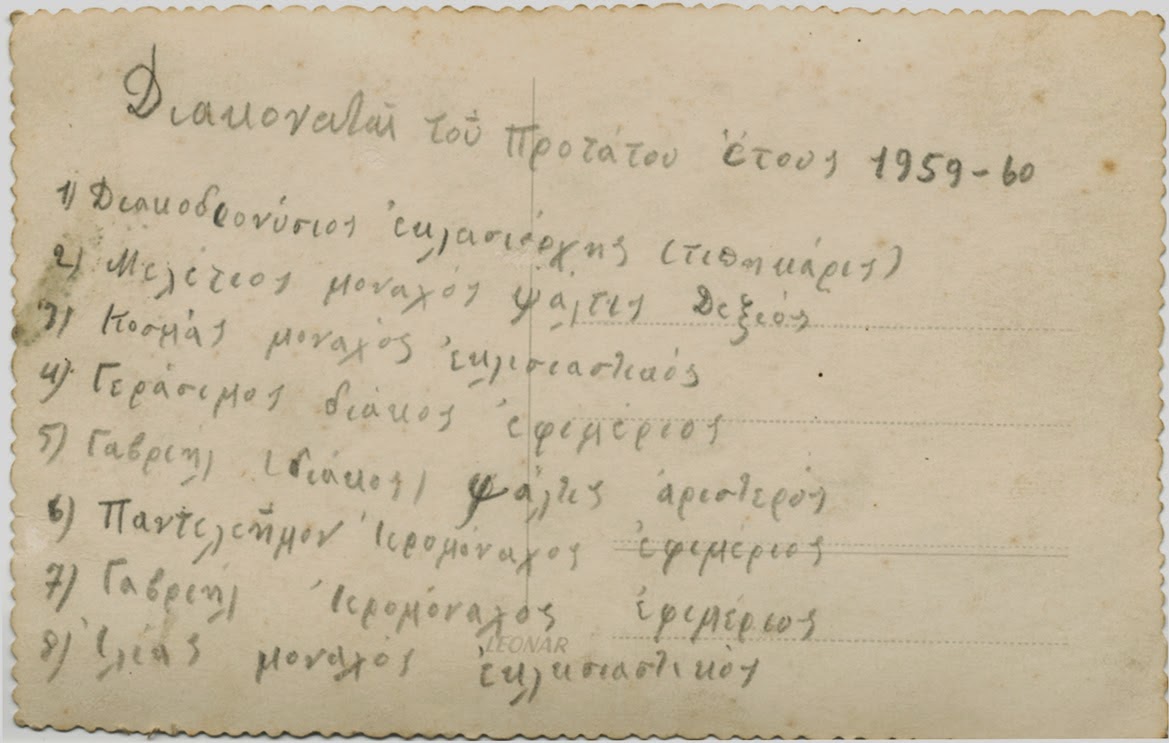 Διακοναταὶ τοῦ Προτάτου ἔτους 1959-60
1) Διακοδιονύσιος ἐκλασιάρχης (τιπηκάρις)
2) Μελέτιος μοναχός ψάλτις Δεξιός
3) Κοσμάς μοναχός ἐκλισιαστικός
4) Γεράσιμος διάκος ἐφιμέριος
5) Γαβριήλ (διάκος) ψάλτις ἀριστερός
6) Παντελεήμον Ἱερομόναχος ἐφιμέριος
7) Γαβριήλ Ἱερομόναχος ἐφιμέριος
8) Ἰλίας μοναχός ἐκλησιαστικός
LEONAR